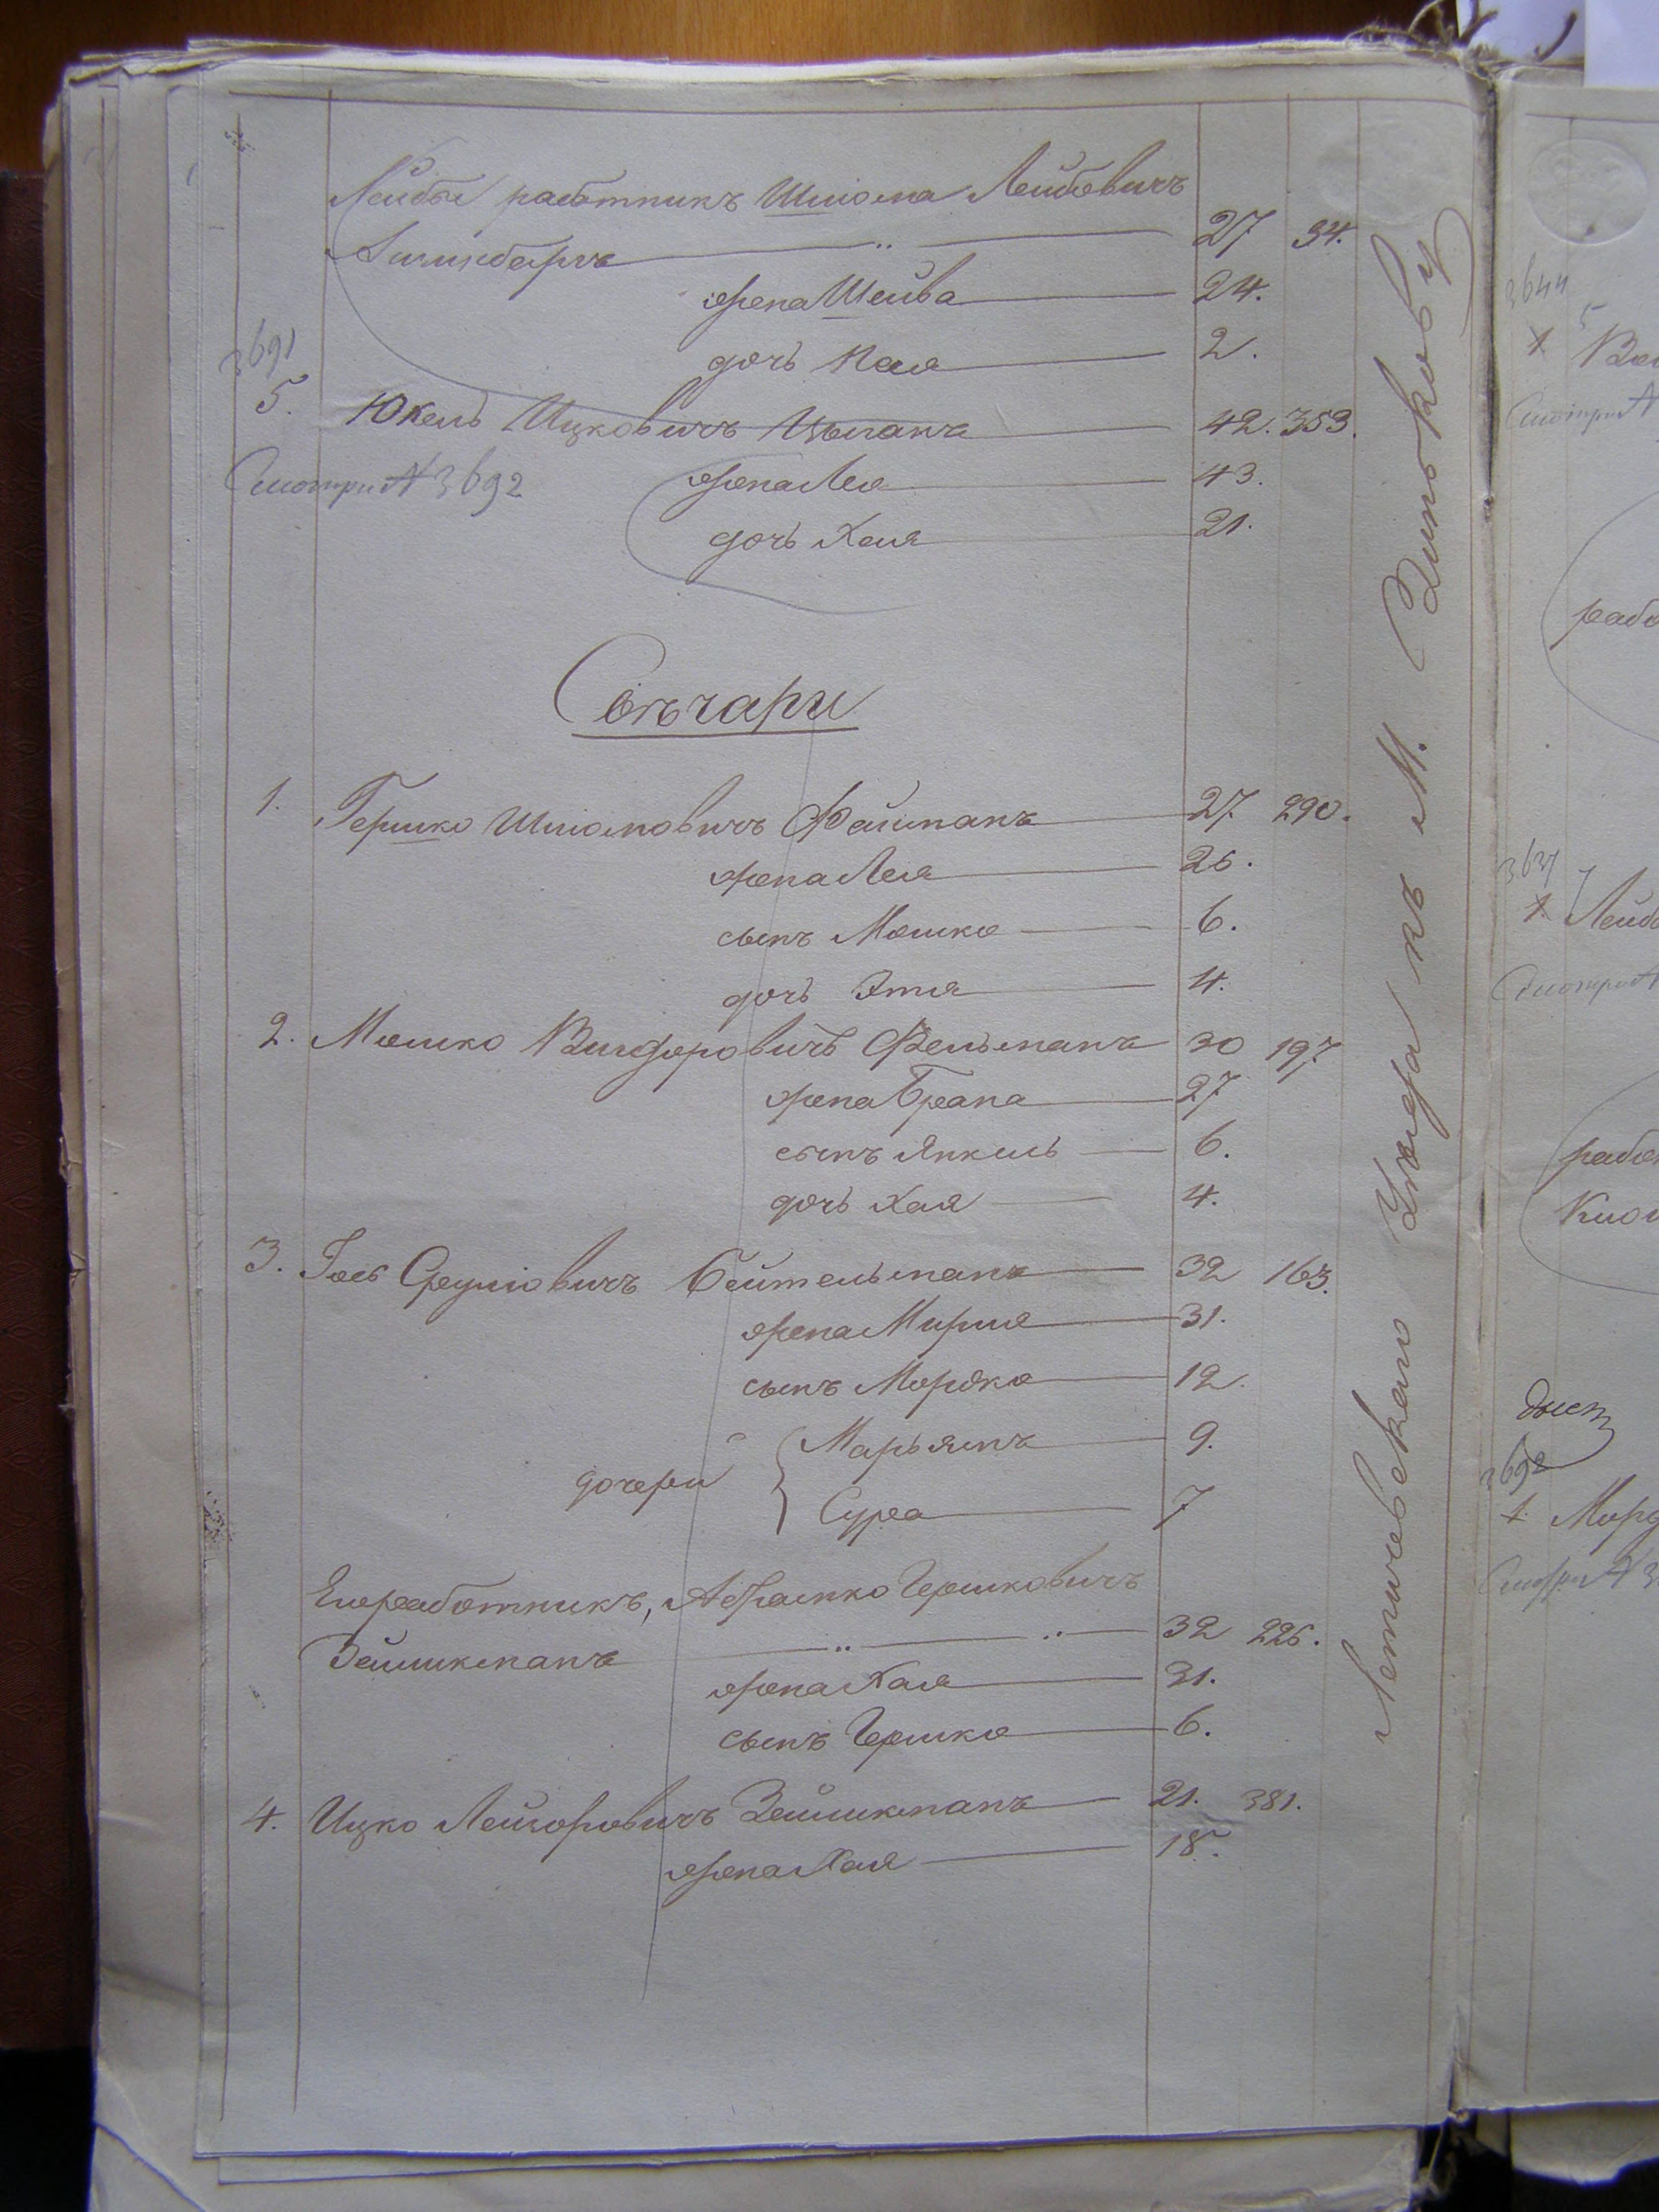 Лейбы работникъ Шліома Лейбовичъ
27 34.
жена Шейва 24.
дочь Хая 2.
3691
5. Юкель Ицковичъ Цыганъ 42. 353.
Смотри № 3692
жена Лея 43.
дочь Хая 21.
1. Гершко Шліомовичъ Файманъ 27. 290.
жена Лея 26.
сынъ Мошко 6.
дочь Этля 4.
2. Мошко Вигдоровичъ Фельманъ 30 197.
жена Брана 27
сынъ Янкель 6.
дочь Хая 4.
3. Іось Сруліовичъ Бейтельманъ 32 163.
жена Мирля 31.
сынъ Мордко 12.
дочери Марьямъ 9.
Сура 7
Его работникъ, Абрамко Гершковичъ
Зейликманъ 32 226.
жена Хая 31.
сынъ Гершко 6.
4. Ицко Лейзоровичъ Зейликманъ 21. 381.
жена Хая 18.
Летичевскаго Уѣзда въ М. Зиньковъ
3644
5
1.
Смотри №
рабо
3637
1. Лейб
Смотри №
рабо
3692
1. Морд